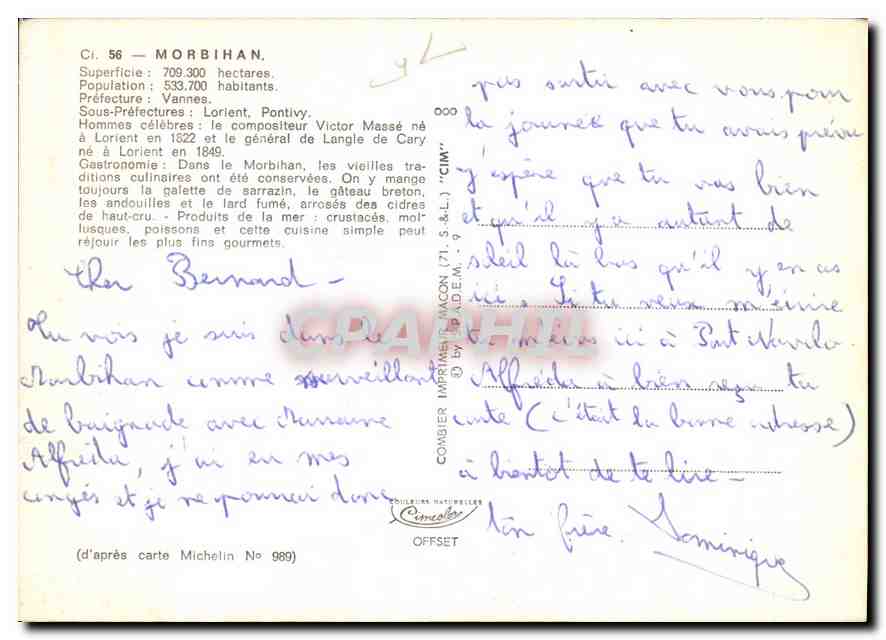 Ci. 56 — MORBIHAN.
Superficie : 709.300 hectares.
Population : 533.700 habitants.
Préfecture : Vannes.
Sous-Préfectures : Lorient, Pontivy.
Hommes célèbres : le compositeur Victor Massé né
à Lorient en 1822 et le général de Langle de Cary
né à Lorient en 1849.
Gastronomie : Dans le Morbihan, les vieilles tra-
ditions culinaires ont été conservées. On y mange
toujours la galette de sarrazin, le gâteau breton,
les andouilles et le lard fumé, arrosés des cidres
de haut-cru. - Produits de la mer : crustacés, mol-
lusques, poissons et cette cuisine simple peut
réjouir les plus fins gourmets.
Cher Bernard -
Tu vois je suis dans le
Morbihan comme surveillant
de baignade avec Marraine
Alfréda, j'ai eu mes
congés et je ne pourrai donc
(d'après carte Michelin No 989)
COMBIER IMPRIMEUR MACON (71. S.-&-L.) "CIM"
© by S.P.A.D.E.M. - 9
COULEURS NATURELLES
Cimcolor
OFFSET
CPAPHIL
pas sortir avec vous pour
la journée que tu avais prévu
j'espère que tu vas bien
et qu'il y a autant de
soleil là bas qu'il y en as
ici. Si tu veux m'écrire
tu m'écris ici à Port Navalo.
Alfréda à bien reçu ta
carte (c'était la bonne adresse)
à bientot de te lire -
ton frère. Dominique